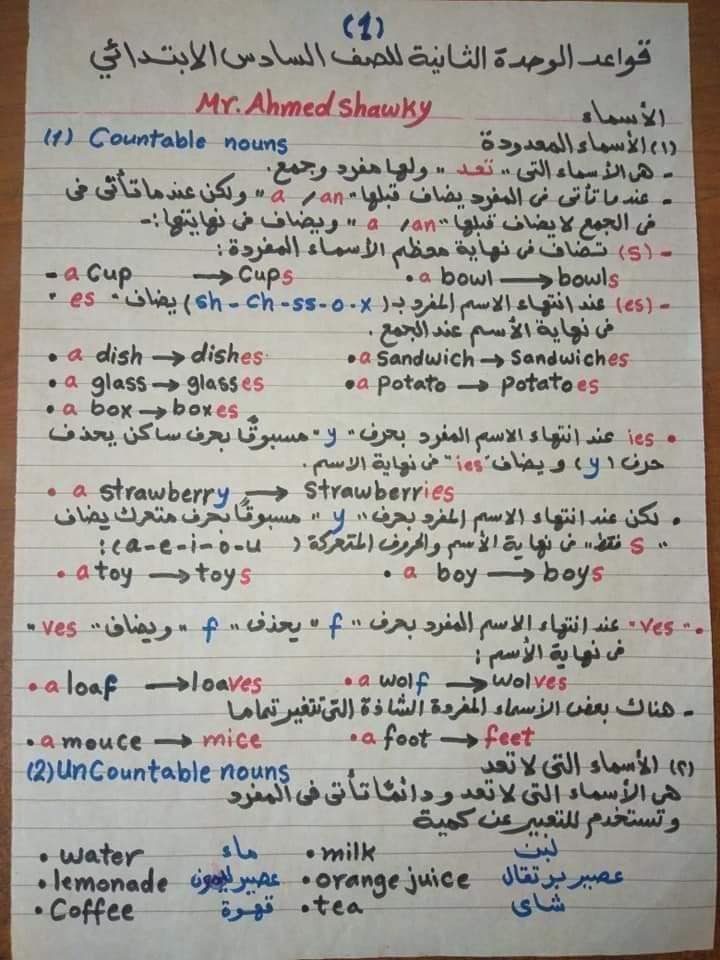 (1)
قواعد الوحدة الثانية للصف السادس الابتدائي
Mr. Ahmed Shawky
الأسماء
(1) الأسماء المعدودة (1) Countable nouns
- هى الأسماء التى "تعد" ولها مفرد وجمع.
- عندما تأتى فى المفرد يضاف قبلها "a / an" ولكن عندما تأتى فى
فى الجمع لا يضاف قبلها "a / an" ويضاف فى نهايتها:-
- (s) تضاف فى نهاية معظم الأسماء المفردة:
- a cup → cups • a bowl → bowls
- (es) عند انتهاء الاسم المفرد بـ (sh - ch - ss - o - x) يضاف "es"
فى نهاية الأسم عند الجمع.
• a dish → dishes • a sandwich → sandwiches
• a glass → glasses • a potato → potatoes
• a box → boxes
• ies عند انتهاء الاسم المفرد بحرف "y" مسبوقًا بحرف ساكن يحذف
حرف (y) ويضاف "ies" فى نهاية الاسم.
• a strawberry → strawberries
• لكن عند انتهاء الاسم المفرد بحرف "y" مسبوقًا بحرف متحرك يضاف
"s فقط" فى نهاية الأسم والحروف المتحركة (a-e-i-o-u):
• a toy → toys • a boy → boys
• "ves" عند انتهاء الاسم المفرد بحرف "f" يحذف "f" ويضاف "ves"
فى نهاية الأسم:
• a loaf → loaves • a wolf → wolves
- هناك بعض الأسماء المفردة الشاذة التى تتغير تماما
• a mouce → mice • a foot → feet
(٢) الأسماء التى لا تعد (2) UnCountable nouns
هى الأسماء التى لا تعد ودائمًا تأتى فى المفرد
وتستخدم للتعبير عن كمية
• water ماء • milk لبن
• lemonade عصير ليمون • orange juice عصير برتقال
• Coffee قهوة • tea شاى